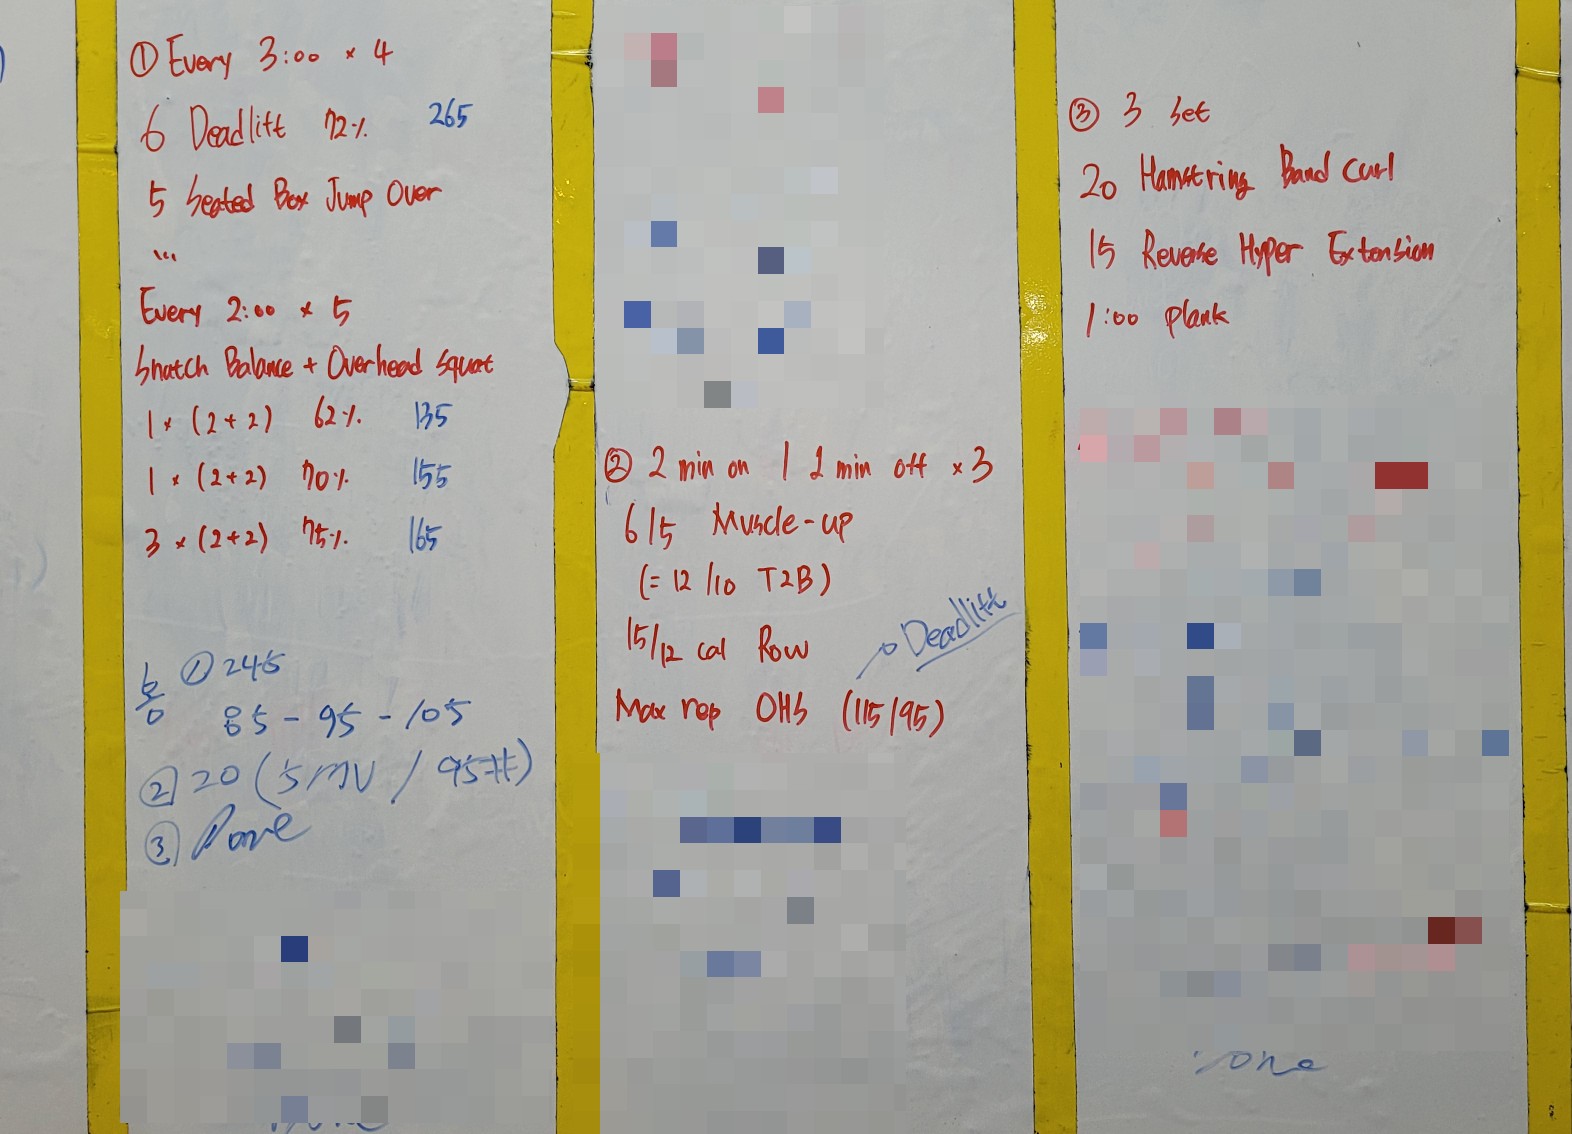 ① Every 3:00 × 4
6 Deadlift 72% 265
5 Seated Box Jump Over
Every 2:00 × 5
Snatch Balance + Overhead Squat
1 × (2+2) 62% 135
1 × (2+2) 70% 155
3 × (2+2) 75% 165
홍 ① 245
85 - 95 - 105
② 20 (5MU / 95#)
③ Done
② 2 min on / 2 min off × 3
6/5 Muscle-up
(= 12/10 T2B)
15/12 cal Row
Deadlift
Max rep OHS (115/95)
③ 3 Set
20 Hamstring Band Curl
15 Reverse Hyper Extension
1:00 plank